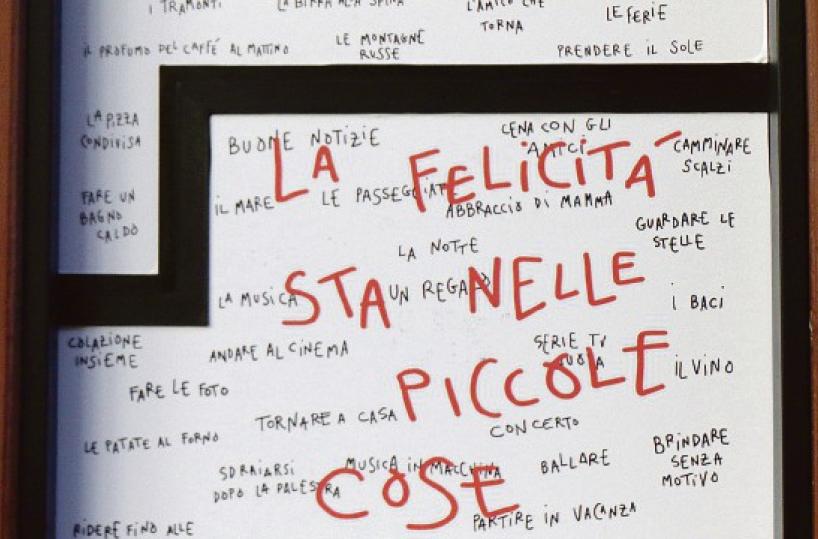 I TRAMONTI
LA BIRRA ALLA SPINA
L'AMICO CHE
TORNA
LE FERIE
IL PROFUMO DEL CAFFÉ AL MATTINO
LE MONTAGNE
RUSSE
PRENDERE IL SOLE
LA PIZZA
CONDIVISA
BUONE NOTIZIE
CENA CON GLI
AMICI
CAMMINARE
SCALZI
LA FELICITÁ
FARE UN
BAGNO
CALDO
IL MARE
LE PASSEGGIATE
ABBRACCIO DI MAMMA
GUARDARE LE
STELLE
LA NOTTE
LA MUSICA
UN REGALO
STA NELLE
I BACI
COLAZIONE
INSIEME
ANDARE AL CINEMA
SERIE TV
IL VINO
FARE LE FOTO
PICCOLE
TORNARE A CASA
CONCERTO
LE PATATE AL FORNO
SDRAIARSI
DOPO LA PALESTRA
MUSICA IN MACCHINA
BALLARE
BRINDARE
SENZA
MOTIVO
COSE
PARTIRE IN VACANZA
RIDERE FINO ALLE